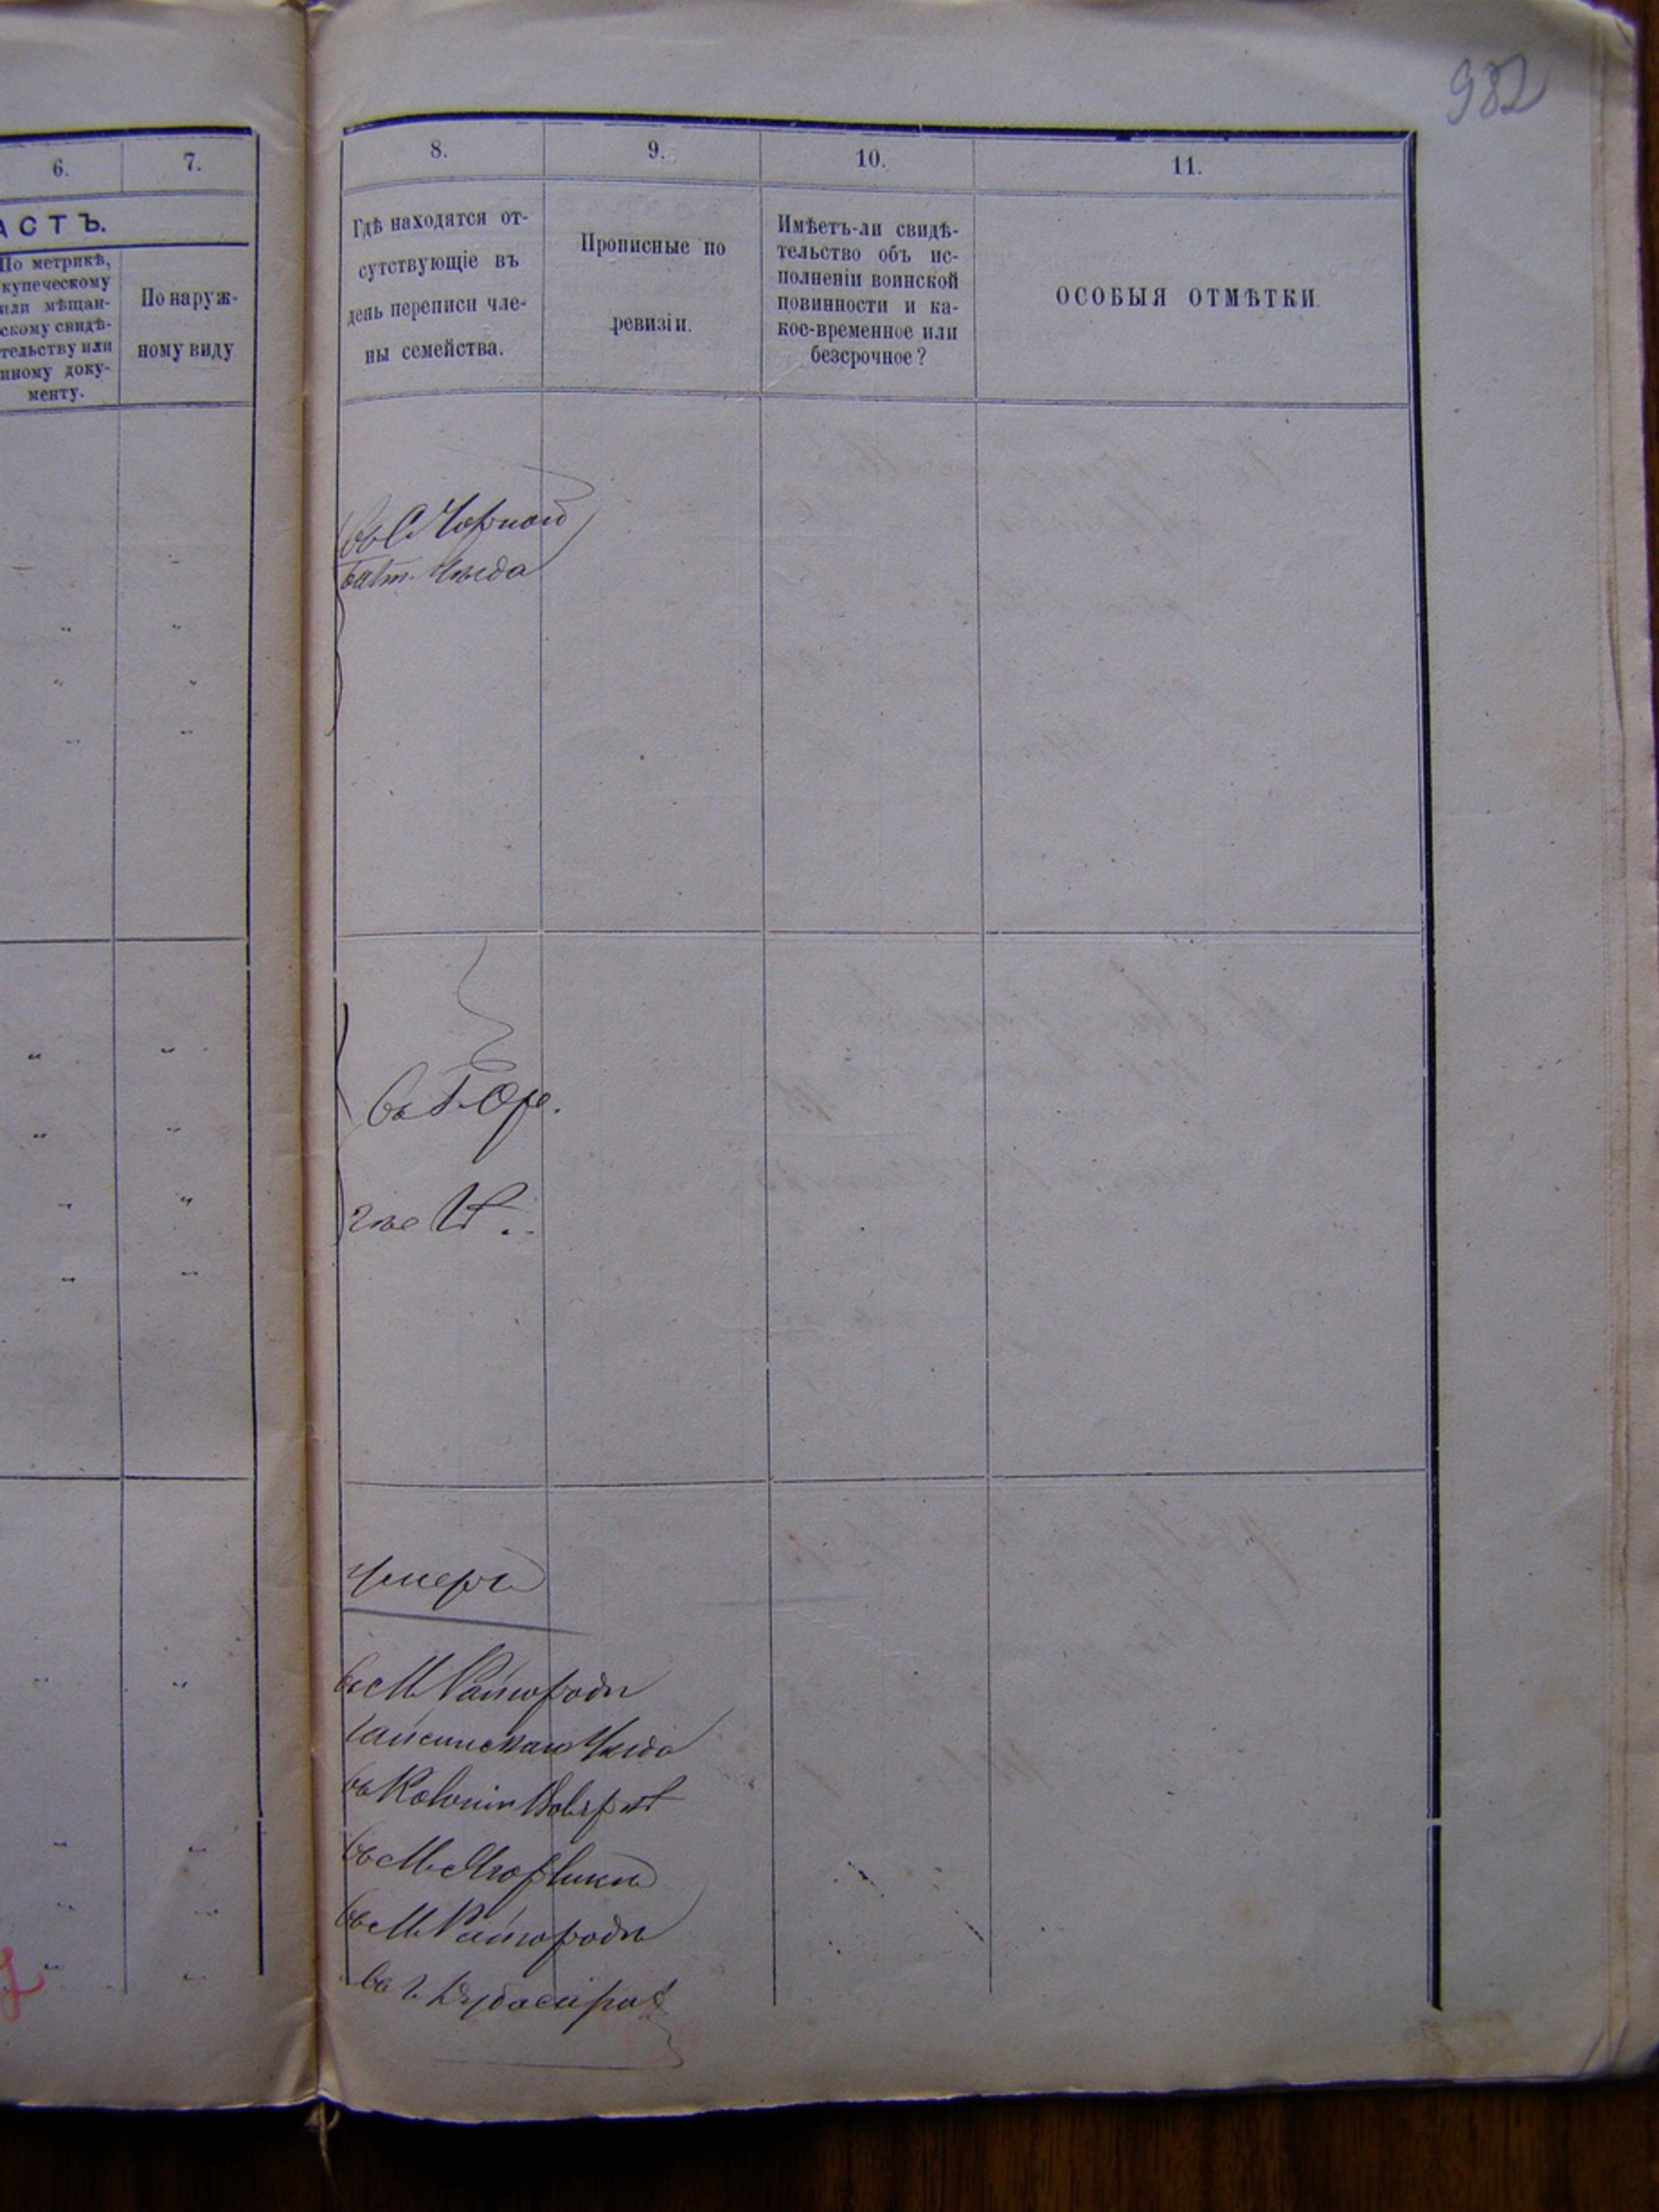 982
6.
7.
АСТЪ.
По метрикѣ,
купеческому
или мѣщан-
скому свидѣ-
тельству или
иному доку-
менту.
По наруж-
ному виду
8.
9.
10.
11.
Гдѣ находятся от-
сутствующіе въ
день переписи чле-
ны семейства.
Прописные по
ревизіи.
Имѣетъ-ли свидѣ-
тельство объ ис-
полненіи воинской
повинности и ка-
кое-временное или
безсрочное?
ОСОБЫЯ ОТМѢТКИ.
въ С. Чорной
Балт. Уѣзда
въ Г. Ор.
умеръ
въ М. Райгородѣ
Гайсинскаго Уѣзда
въ Колоніи
въ М.
въ М. Райгородѣ
въ г. Дубасарахъ